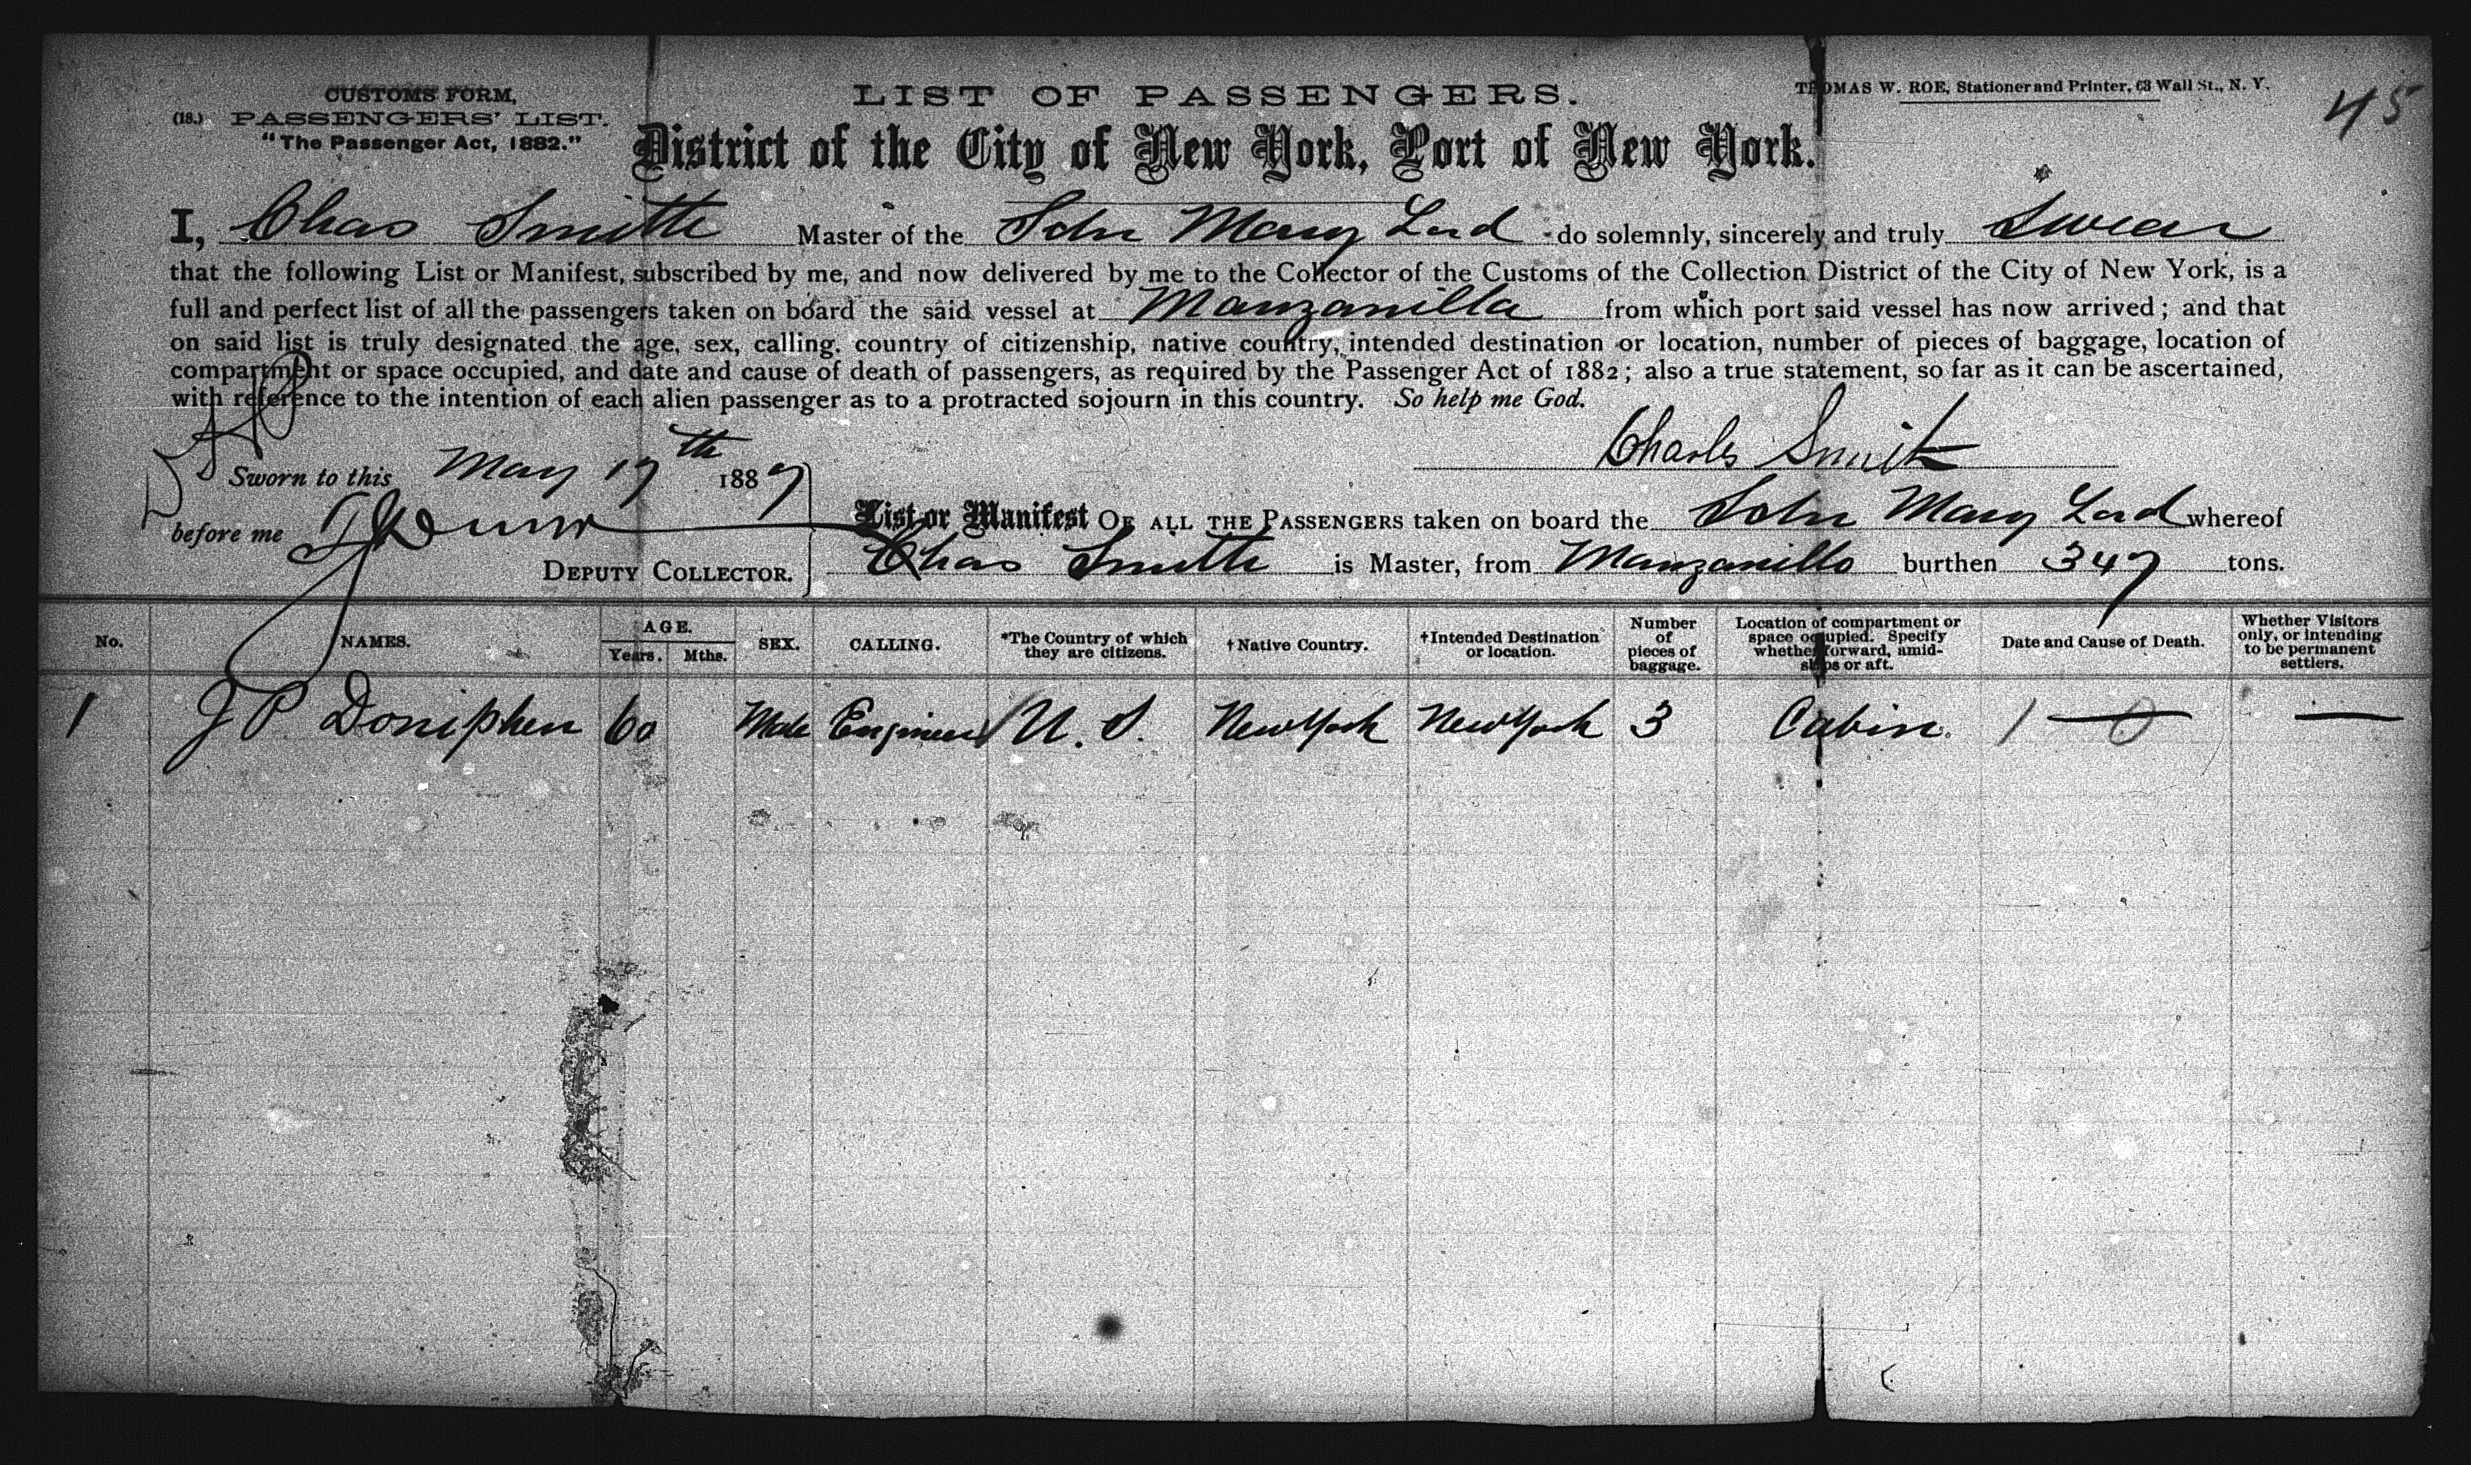 CUSTOMS FORM,
(18.) PASSENGERS' LIST.
"The Passenger Act, 1882."
LIST OF PASSENGERS.
THOMAS W. ROE, Stationer and Printer, 63 Wall St., N. Y.
45
District of the City of New York, Port of New York.
I, Chas Smith Master of the John Mary Lord do solemnly, sincerely and truly Swear
that the following List or Manifest, subscribed by me, and now delivered by me to the Collector of the Customs of the Collection District of the City of New York, is a
full and perfect list of all the passengers taken on board the said vessel at Manzanilla from which port said vessel has now arrived; and that
on said list is truly designated the age, sex, calling, country of citizenship, native country, intended destination or location, number of pieces of baggage, location of
compartment or space occupied, and date and cause of death of passengers, as required by the Passenger Act of 1882; also a true statement, so far as it can be ascertained,
with reference to the intention of each alien passenger as to a protracted sojourn in this country. So help me God.
Charles Smith
Sworn to this May 17th 1887
before me
DEPUTY COLLECTOR.
List or Manifest OF ALL THE PASSENGERS taken on board the John Mary Lord whereof
Chas Smith is Master, from Manzanillo burthen 347 tons.
No. NAMES. AGE. Years. Mths. SEX. CALLING. *The Country of which they are citizens. †Native Country. †Intended Destination or location. Number of pieces of baggage. Location of compartment or space occupied. Specify whether forward, amidships or aft. Date and Cause of Death. Whether Visitors only, or intending to be permanent settlers.
1 J P Doniphen 60 Male Engineer U. S. New York New York 3 Cabin. 1 — 0 —